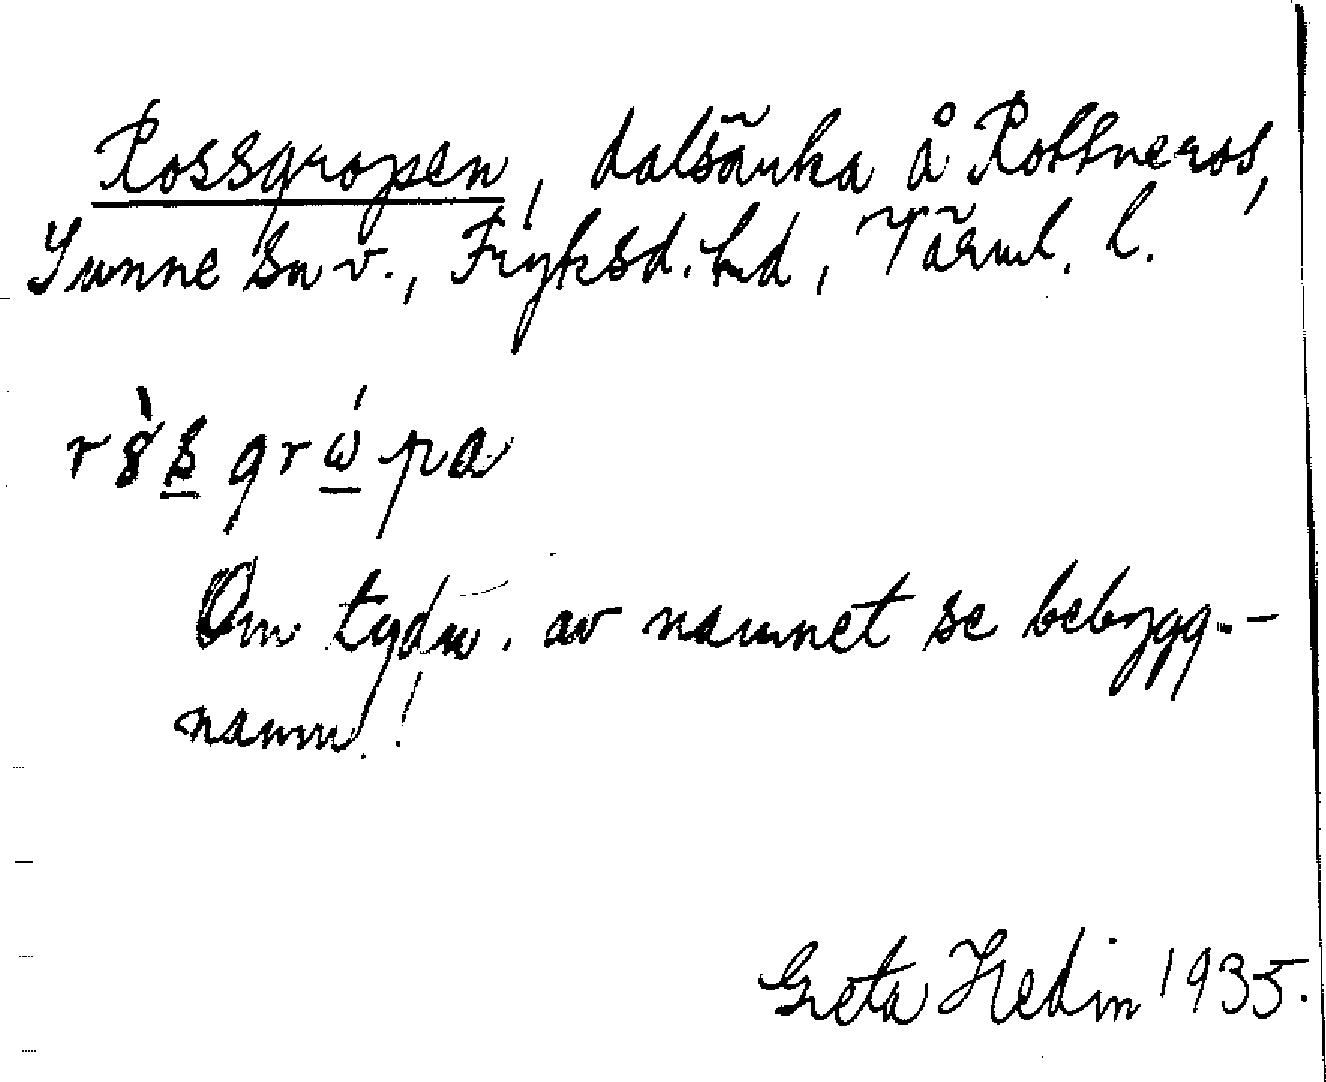 Rossgropen, dalsänka å Rottneros,
Sunne sn v., Fryksd. hd, Värml. l.
r𝑜̀s grώpa
Om tydn. av namnet se bebygg.-
namn!
Greta Hedin 1935.